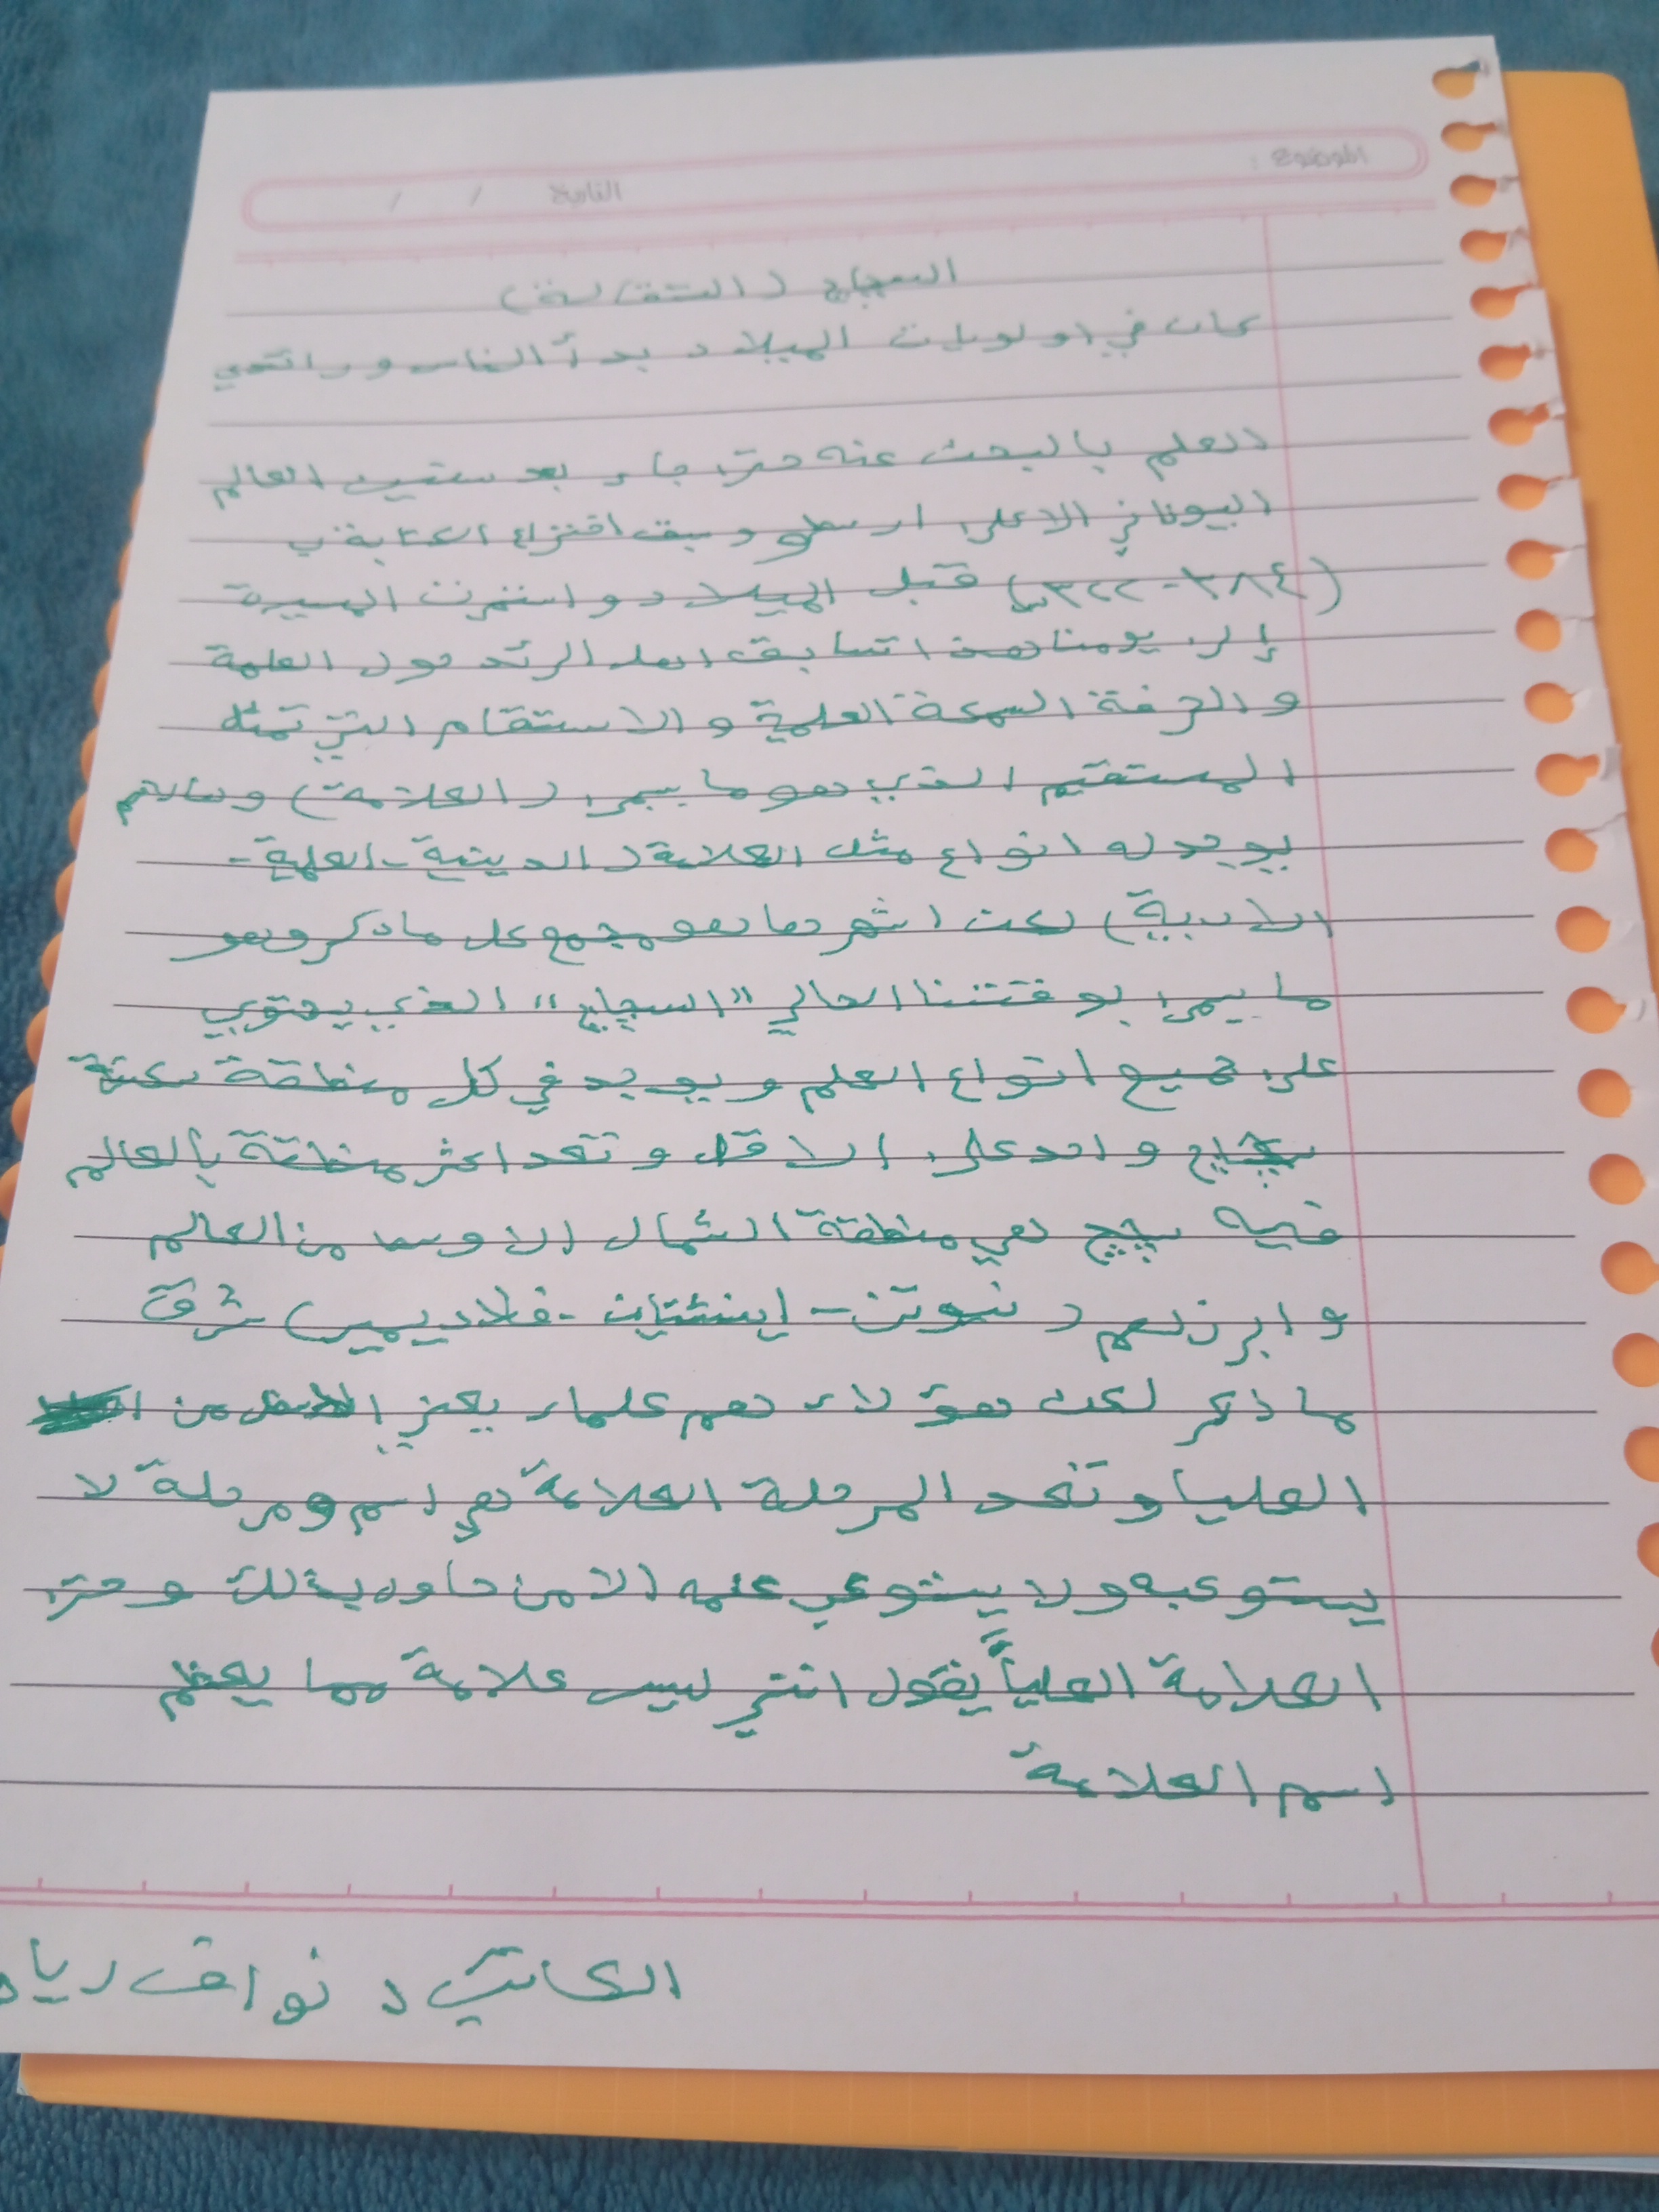 الموضوع :
التاريخ / /
السجاج (الشقالية)
كان في اولويات الميلاد بدأ الناس و
العلم بالبحث عنه حتى جاء بعد ستين العالم
اليوناني الاعلى ارسطو و سبق اختراع الكتابة
(٣٨٤-٣٢٢) قبل الميلاد و استمرت المسيرة
إلى يومنا هذا تسابق اهل الرئد حول العلمة
و الحرفة السمعة العلمية و الاستقام التي تمثله
المستقيم الذي هو ما يسمى (العلامة) و
يوجد له انواع مثل العلامة (الدينية-العلمية-
الادبية) لكن اشهرها هو مجمع كل ما ذكر وهو
ما يسمى بوقتنا الحالي "السجاج" الذي يحتوي
على جميع انواع العلم و يوجد في كل منطقة
سجاج واحد على الاقل و تعد اكثر منطقة بالعالم
فيه سججج هي منطقة الشمال الاوسط من العالم
و ابرزهم (نيوتن - اينشتاين - فلاديمير)
ما ذكر لكن هؤلاء هم علماء يعني من
العليا و تعد المرحلة العلامة هي اسم و مرحلة لا
يستوعبه ولا يستوعي علمه الا من حاوله و حتى
العلامة العلياً يقول انني ليس علامة مما يعظم
اسم العلامة
الكاتب د نواف رياد